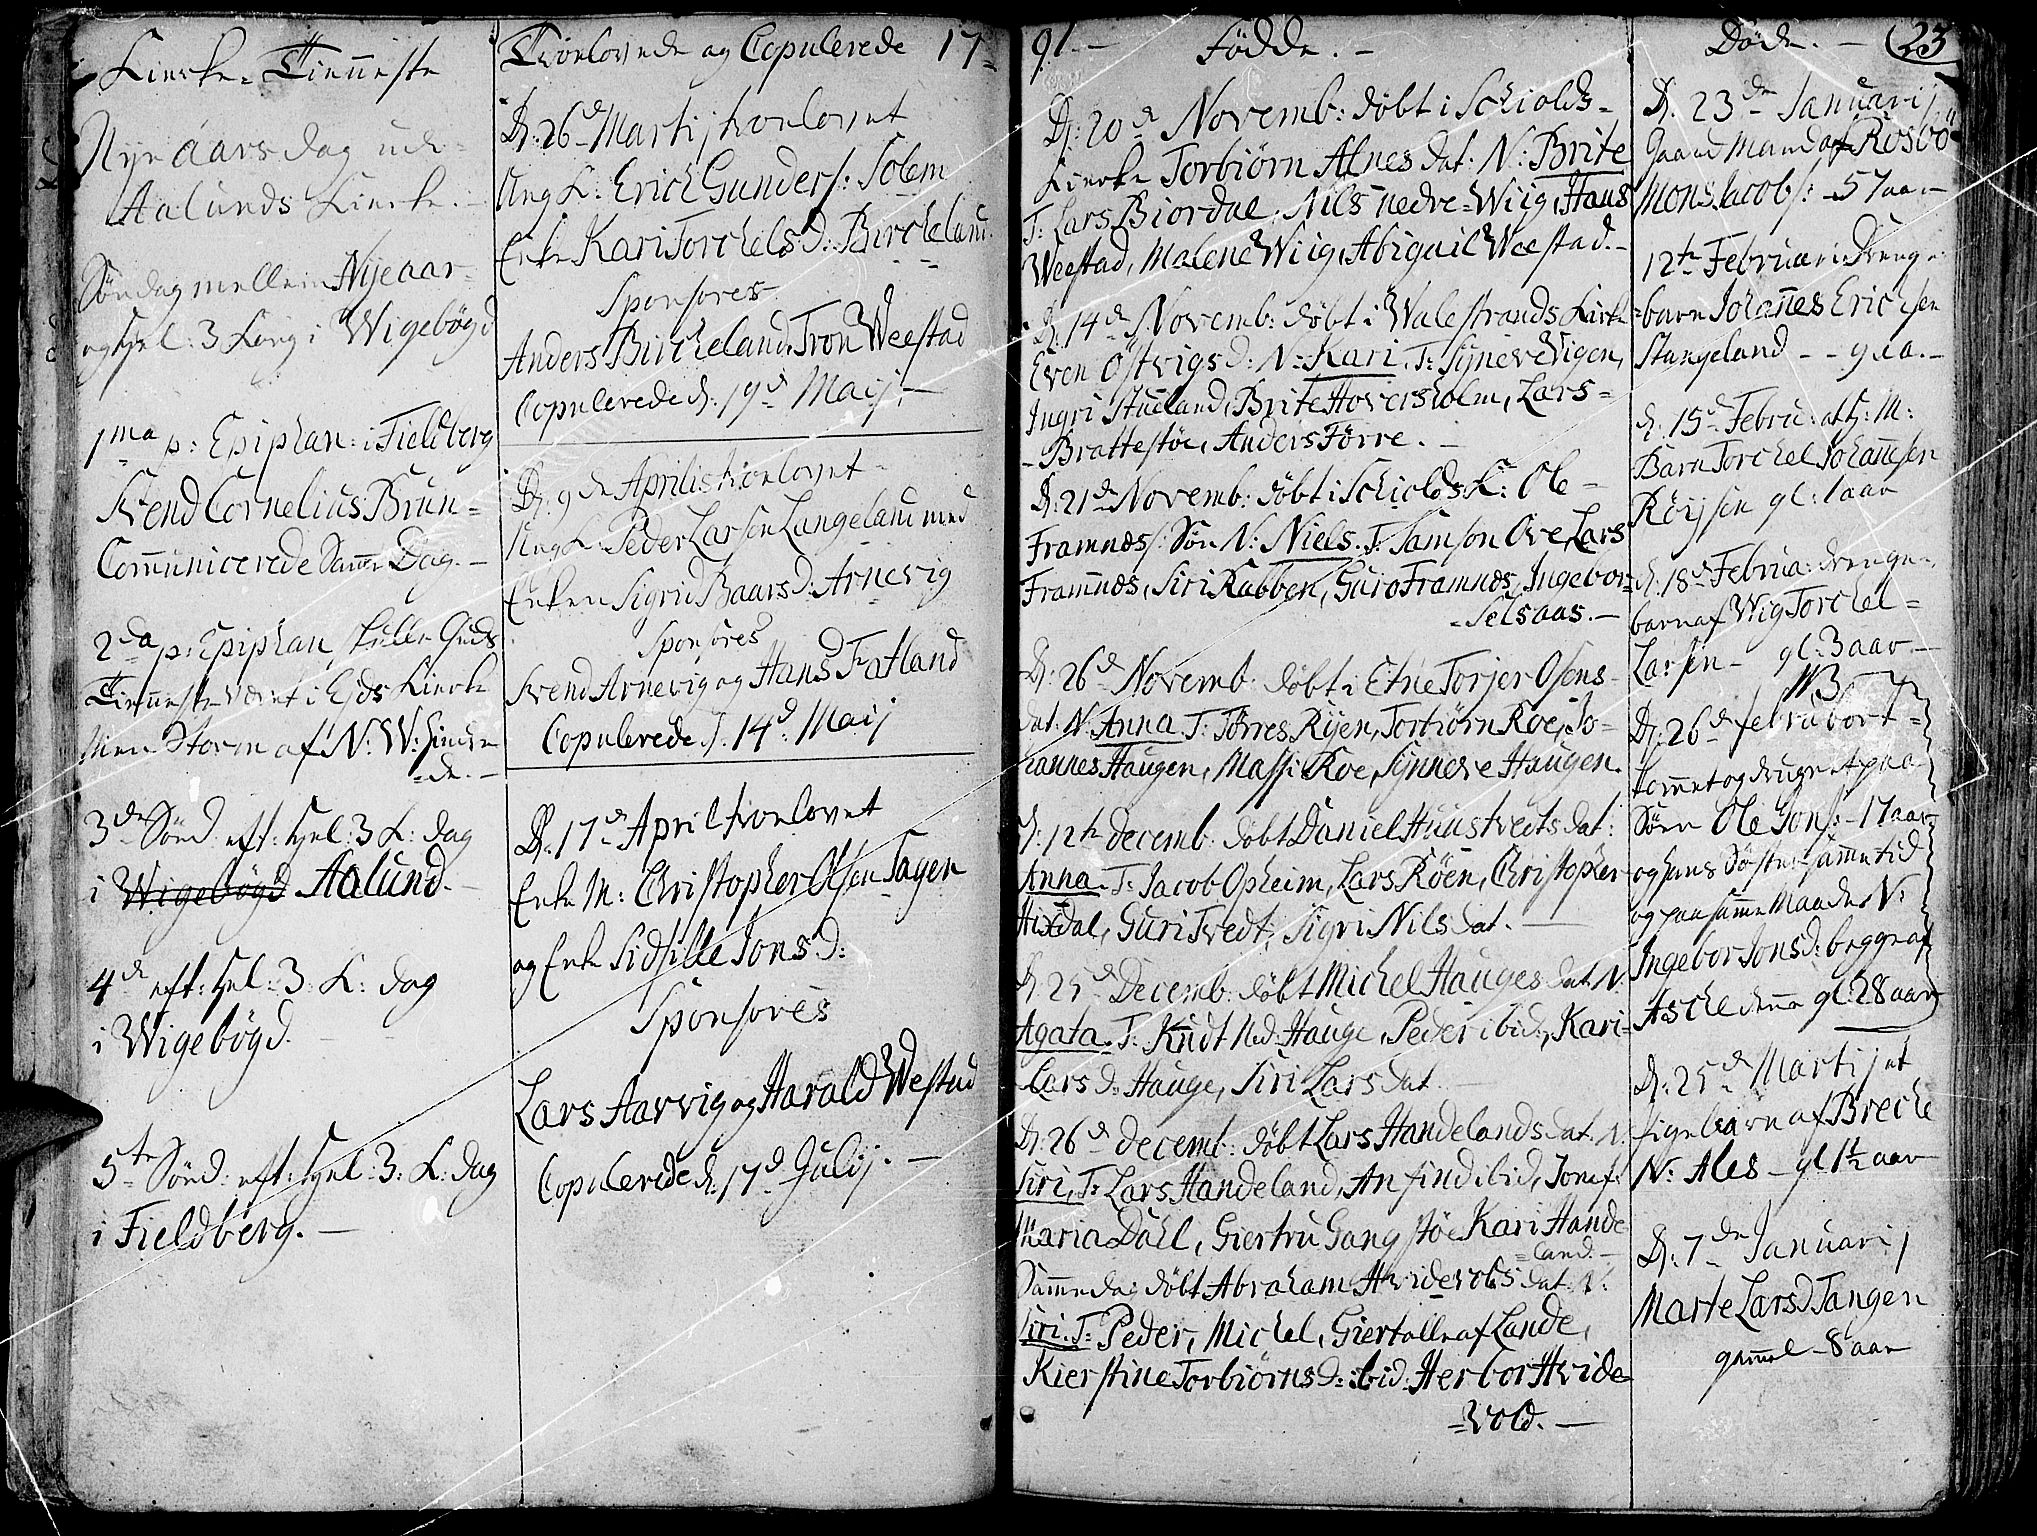 Kierke-Tienneste
Nye aars dag udi
Aalunds Kierke.
Søndag mellem Nyeaar
og Hel: 3 Kong i Wigebøgd
1ma p: Epiphan: i Fieldberg
Svend Cornelius Brun
Communicerede Samme Dag.
2da p: Epiphan skulle Guds
Tienneste været i Eids Kierke
Men Storm af N: W: hindre
=de.
3de Sønd: eft: Hel: 3 K: dag
i Wigebøgd Aalund.
4de eft: Hel: 3: K: dag
i Wigebøgd.
5te Sønd: eft: Hel: 3: K: dag
i Fieldberg.
Trolovede og Copulerede 17=
D: 26de Martij trolovet
Ung K: Erich Gunders: Solem
Enke Kari Torchels D: Bircheland
Sponsores
Anders Bircheland, Tron Weestad
Copulerede d. 19de Maij.
D: 9de Aprilis trolovet
Ung K: Peder Larsen Langeland med
Enken Sigrid Baars D: Arnevig
Sponsores
Svend Arnevig og Hans Fatland
Copulerede d. 14de Maij
D: 17de April trolovet
Enke M: Christopher Olsen Tagen
og Enke Sidsille Jons D:
Sponsores
Lars Aarvig og Harald Westad
Copulerede d: 17de Julij.
91. Fødde.
D: 20de Novemb: døbt i Schiolds
Kierke Torbiørn Alnes dat: N: Brite
T: Lars Biordal, Nils nedre Wiig, Hans
Weestad, Malene Wiig, Abigail Weestad.
D: 14de Novemb: døbt i Walestrands Kirke
Even Østvigs d: N: Kari, T: Syneve Vigen,
Ingri Stueland, Brite Hoversholm, Lars
Brattestøe, Anders Førre.
D: 21de Novemb: døbt i Schiolds K: Ole
Framnæs: Søn N: Niels. T: Samson Ove, Lars
Framnæs, Siri Rabben, Guro Framnæs, Ingebor
Selsaas.
D: 26de Novemb: døbt i Etne Torjer Osens
dat: N: Anna T: Torres Ryen, Torbiørn Roe, Jo=
hannes Haugen, Massi Roe, Synneve Haugen.
d: 12te decemb: døbt Daniel Huustvedts dat:
Anna. T: Jacob Opheim, Lars Røen, Christopher
Hixdal, Guri Tvedt, Sigri Nils dat.
D: 25de Decemb: døbt Michel Hauges dat: N:
Agata. T: Knudt Ned: Hauge, Peder ibid:, Kari
Lars D: Hauge, Siri Lars dat.
D: 26de decemb: døbt Lars Handelands dat: N:
Siri, T: Lars Handeland, Anfind ibid,
Maria Dahl, Giertru Gangstøe Kari Hande
=land.
Samme dag døbt Abraham Hvidevolds dat: N:
Siri. T: Peder, Michel, Giertolle af Lande,
Kierstine Torbiørns D: ibid: Herbor Hvide=
=vold.
Døde. 23
D: 23de Januarij
Gaard Mand af Rosbø
Mons Jacobs: 57 aar
12te Februarij Drenge
barn Johannes Erichsen
Stangeland gl a.
d: 15de Febru: et H: M:
Barn Torchel Johannsen
Röysen gl: 1 aar
d: 18de Februa: drenge
barn af Wig Torchel
Larsen gl: 3 aar
NB
D: 26de Febru bort
kommet og druknet paa
Søen Ole Jons: 17 aar
og hans Søster samme tid
og paa samme Maade N:
Ingebor Jonsd: begge af
Asche denne gl: 28 aar
D: 25de Martij et
Pigebarn af Breche
N: Ales gl 1½ aar
D: 7de Januarij
Marte Larsd Tangen
gammel 8 aar